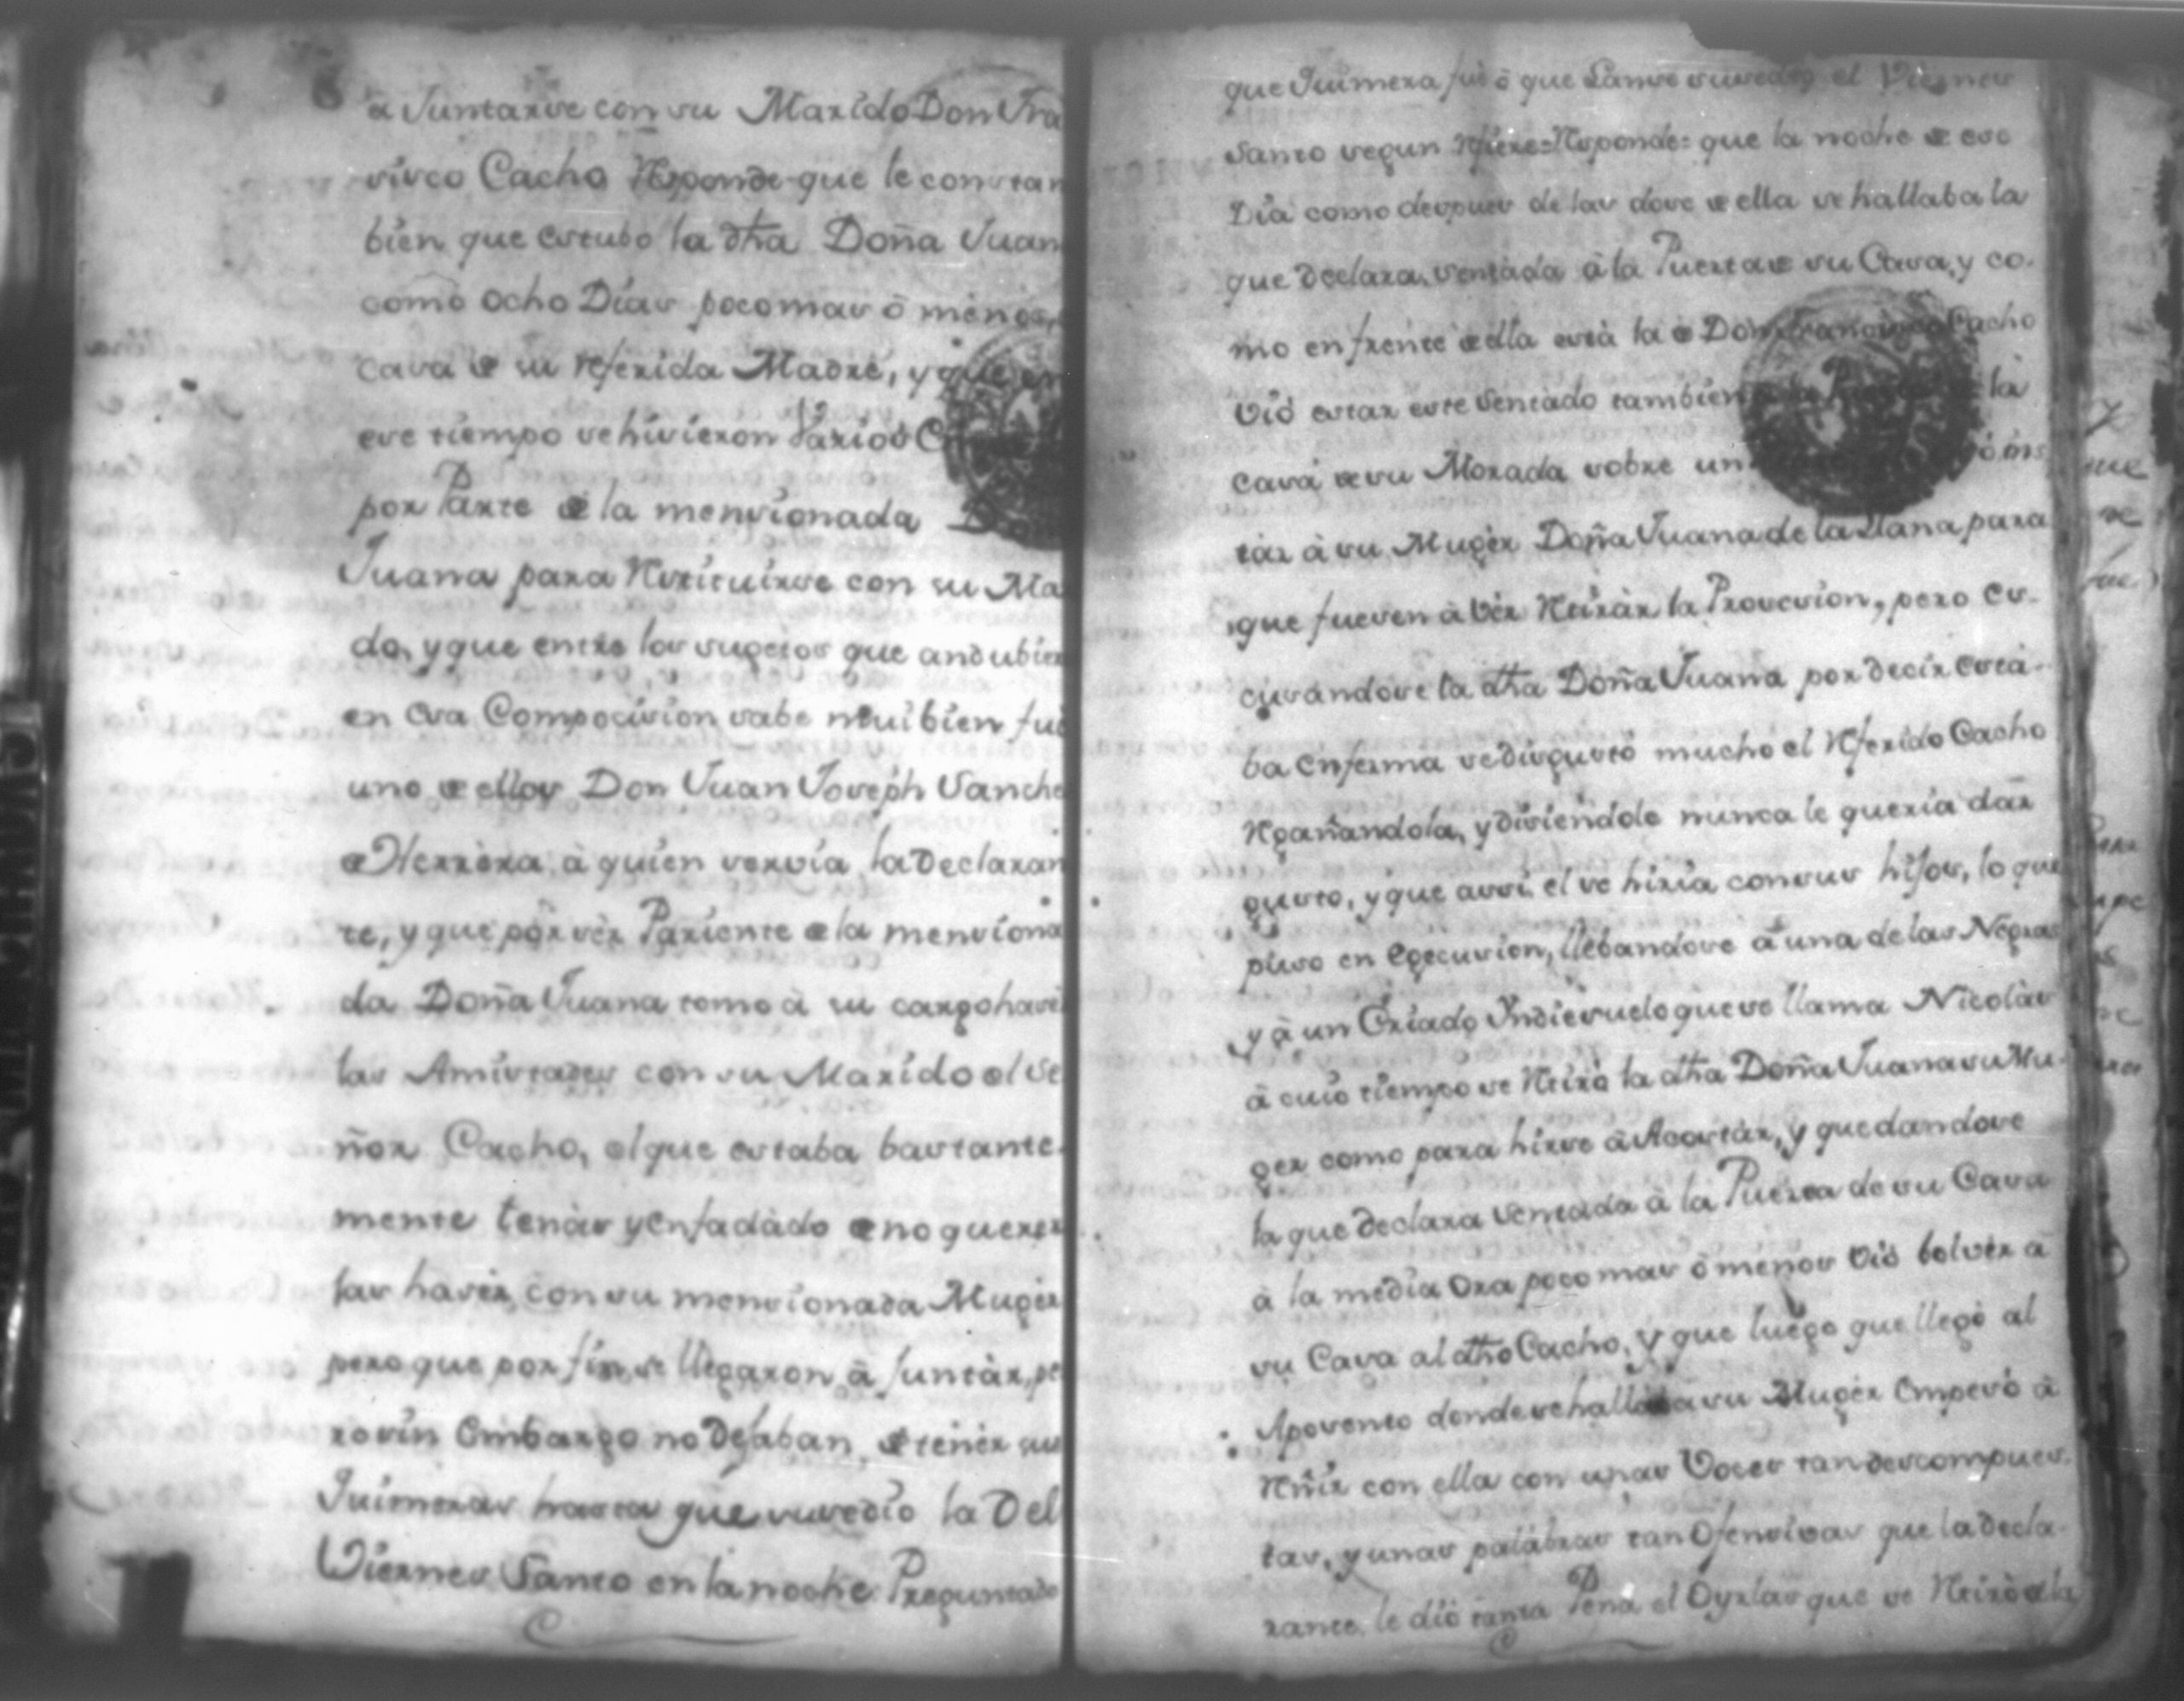 à Juntarse con su Marido Don Fra
sisco Cacho Responde que le constan
bien que estubo la dha Doña Juan
como ocho Dias poco mas ò menos,
casa de su referida Madre, y que en
ese tiempo se hisieron Varios
por Parte de la mensionada
Juana para Restituirse con su Ma
do, y que entre los sugetos que andubier
en esa Composision sabe mui bien fué
uno de ellos Don Juan Joseph Sanche
de Herrèra à quien servia la Declaran
te, y que por sèr Pariente de la mensiona
da Doña Juana tomo à su cargo hasè
las Amistades con su Marido el Se
ñor Cacho, el que estaba bastante
mente tenàs y enfadàdo de no querer
las hasèr con su mensionada Mugèr
pero que por fin se llegaron à Juntàr, pe
ro sin embargo no Dejaban de tenèr sus
Quimeras hasta que susedio la Del
Viernes Santo en la noche Preguntado
que Quimera fuè ò que Lanse susediò el Viernes
Santo segun refiere = Responde = que la noche de ese
Dia como despues de las dose de ella se hallaba la
que declara sentàda à la Puerta de su Casa, y co-
mo en frente de ella està la de Don Fransisco Cacho
Viò estar este Sentado tambien la
casa de su Morada sobre un ò ins
tàr à su Mugèr Doña Juana de la Llana para
que fuesen à Vèr Retiràr la Prosesion, pero es-
cusandose la dha Doña Juana por decir està-
ba Enferma se disgustò mucho el Referido Cacho
Regañandola, y disiendole nunca le queria dar
gusto, y que assi el se hiria con sus hijos, lo que
puso en egecusion, llebandose à una de las Negras
y à un Criado Yndiesuelo que se llama Nicolàs
à cuio tiempo se Retirò la dha Doña Juana su Mu-
ger como para hirse à Acostàr, y quedandose
la que declara Sentada à la Puerta de su Casa
à la media Ora poco mas ò menos Viò bolvèr à
su Casa al dho Cacho, y que luego que llegò al
Aposento donde se hallaba su Mugèr Empesò à
Reñir con ella con unas Voces tan descompues-
tas, y unas palabras tan Ofensivas que la decla-
rante le diò tanta Pena el Oyrlas que se Retirò de la